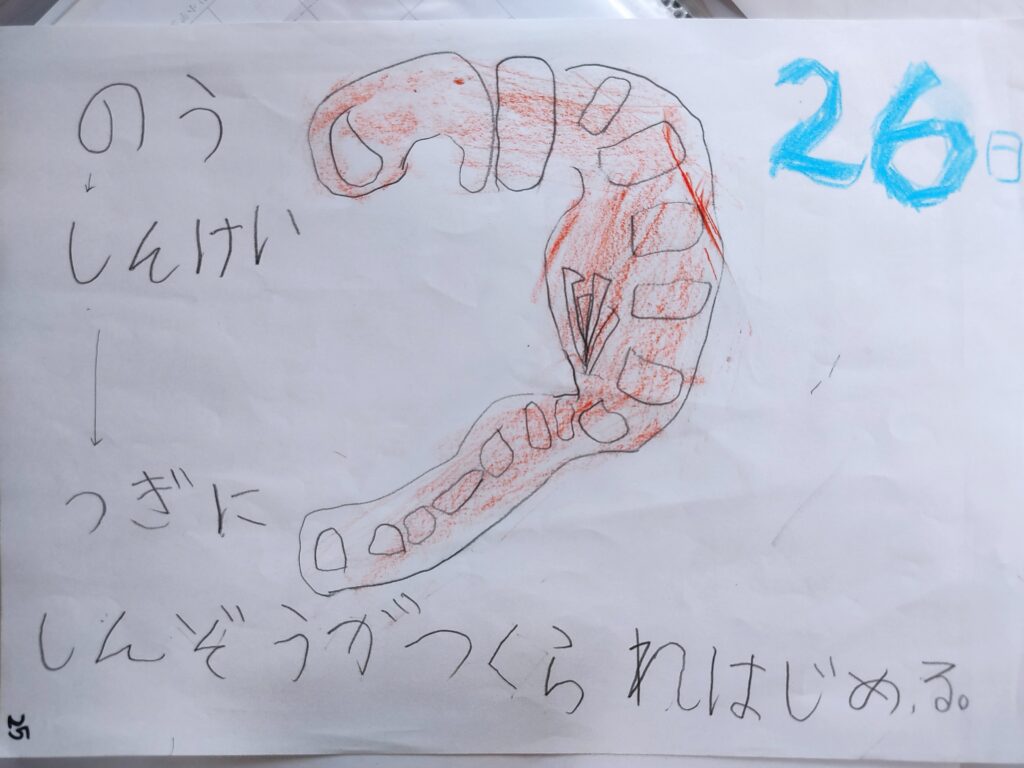 のう
↓
しんけい
↓
つぎに
しんぞうがつくられはじめる。
26日
25